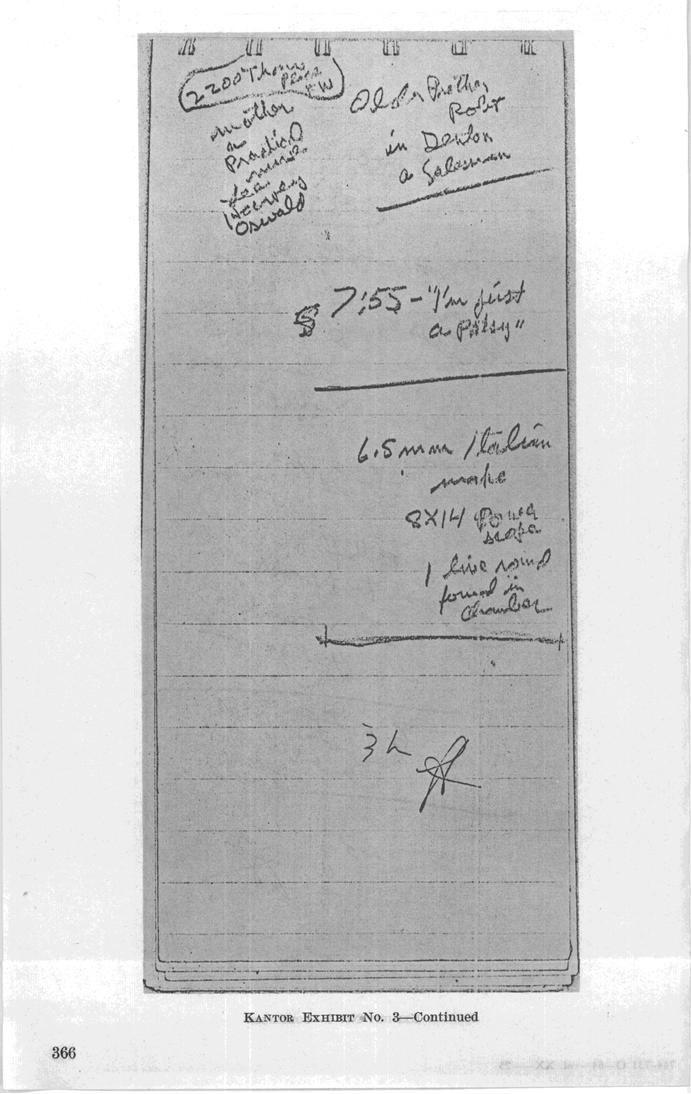 2200 Thomas
Place
FW
mother
a
Practical
nurse
Lee
Harvey
Oswald
Older Brother
Robt
in Denton
a Salesman
7:55 - "I'm just
a patsy"
6.5 mm Italian
make
8X14 Power
scope
1 live round
found in
chamber
KANTOR EXHIBIT No. 3—Continued
366